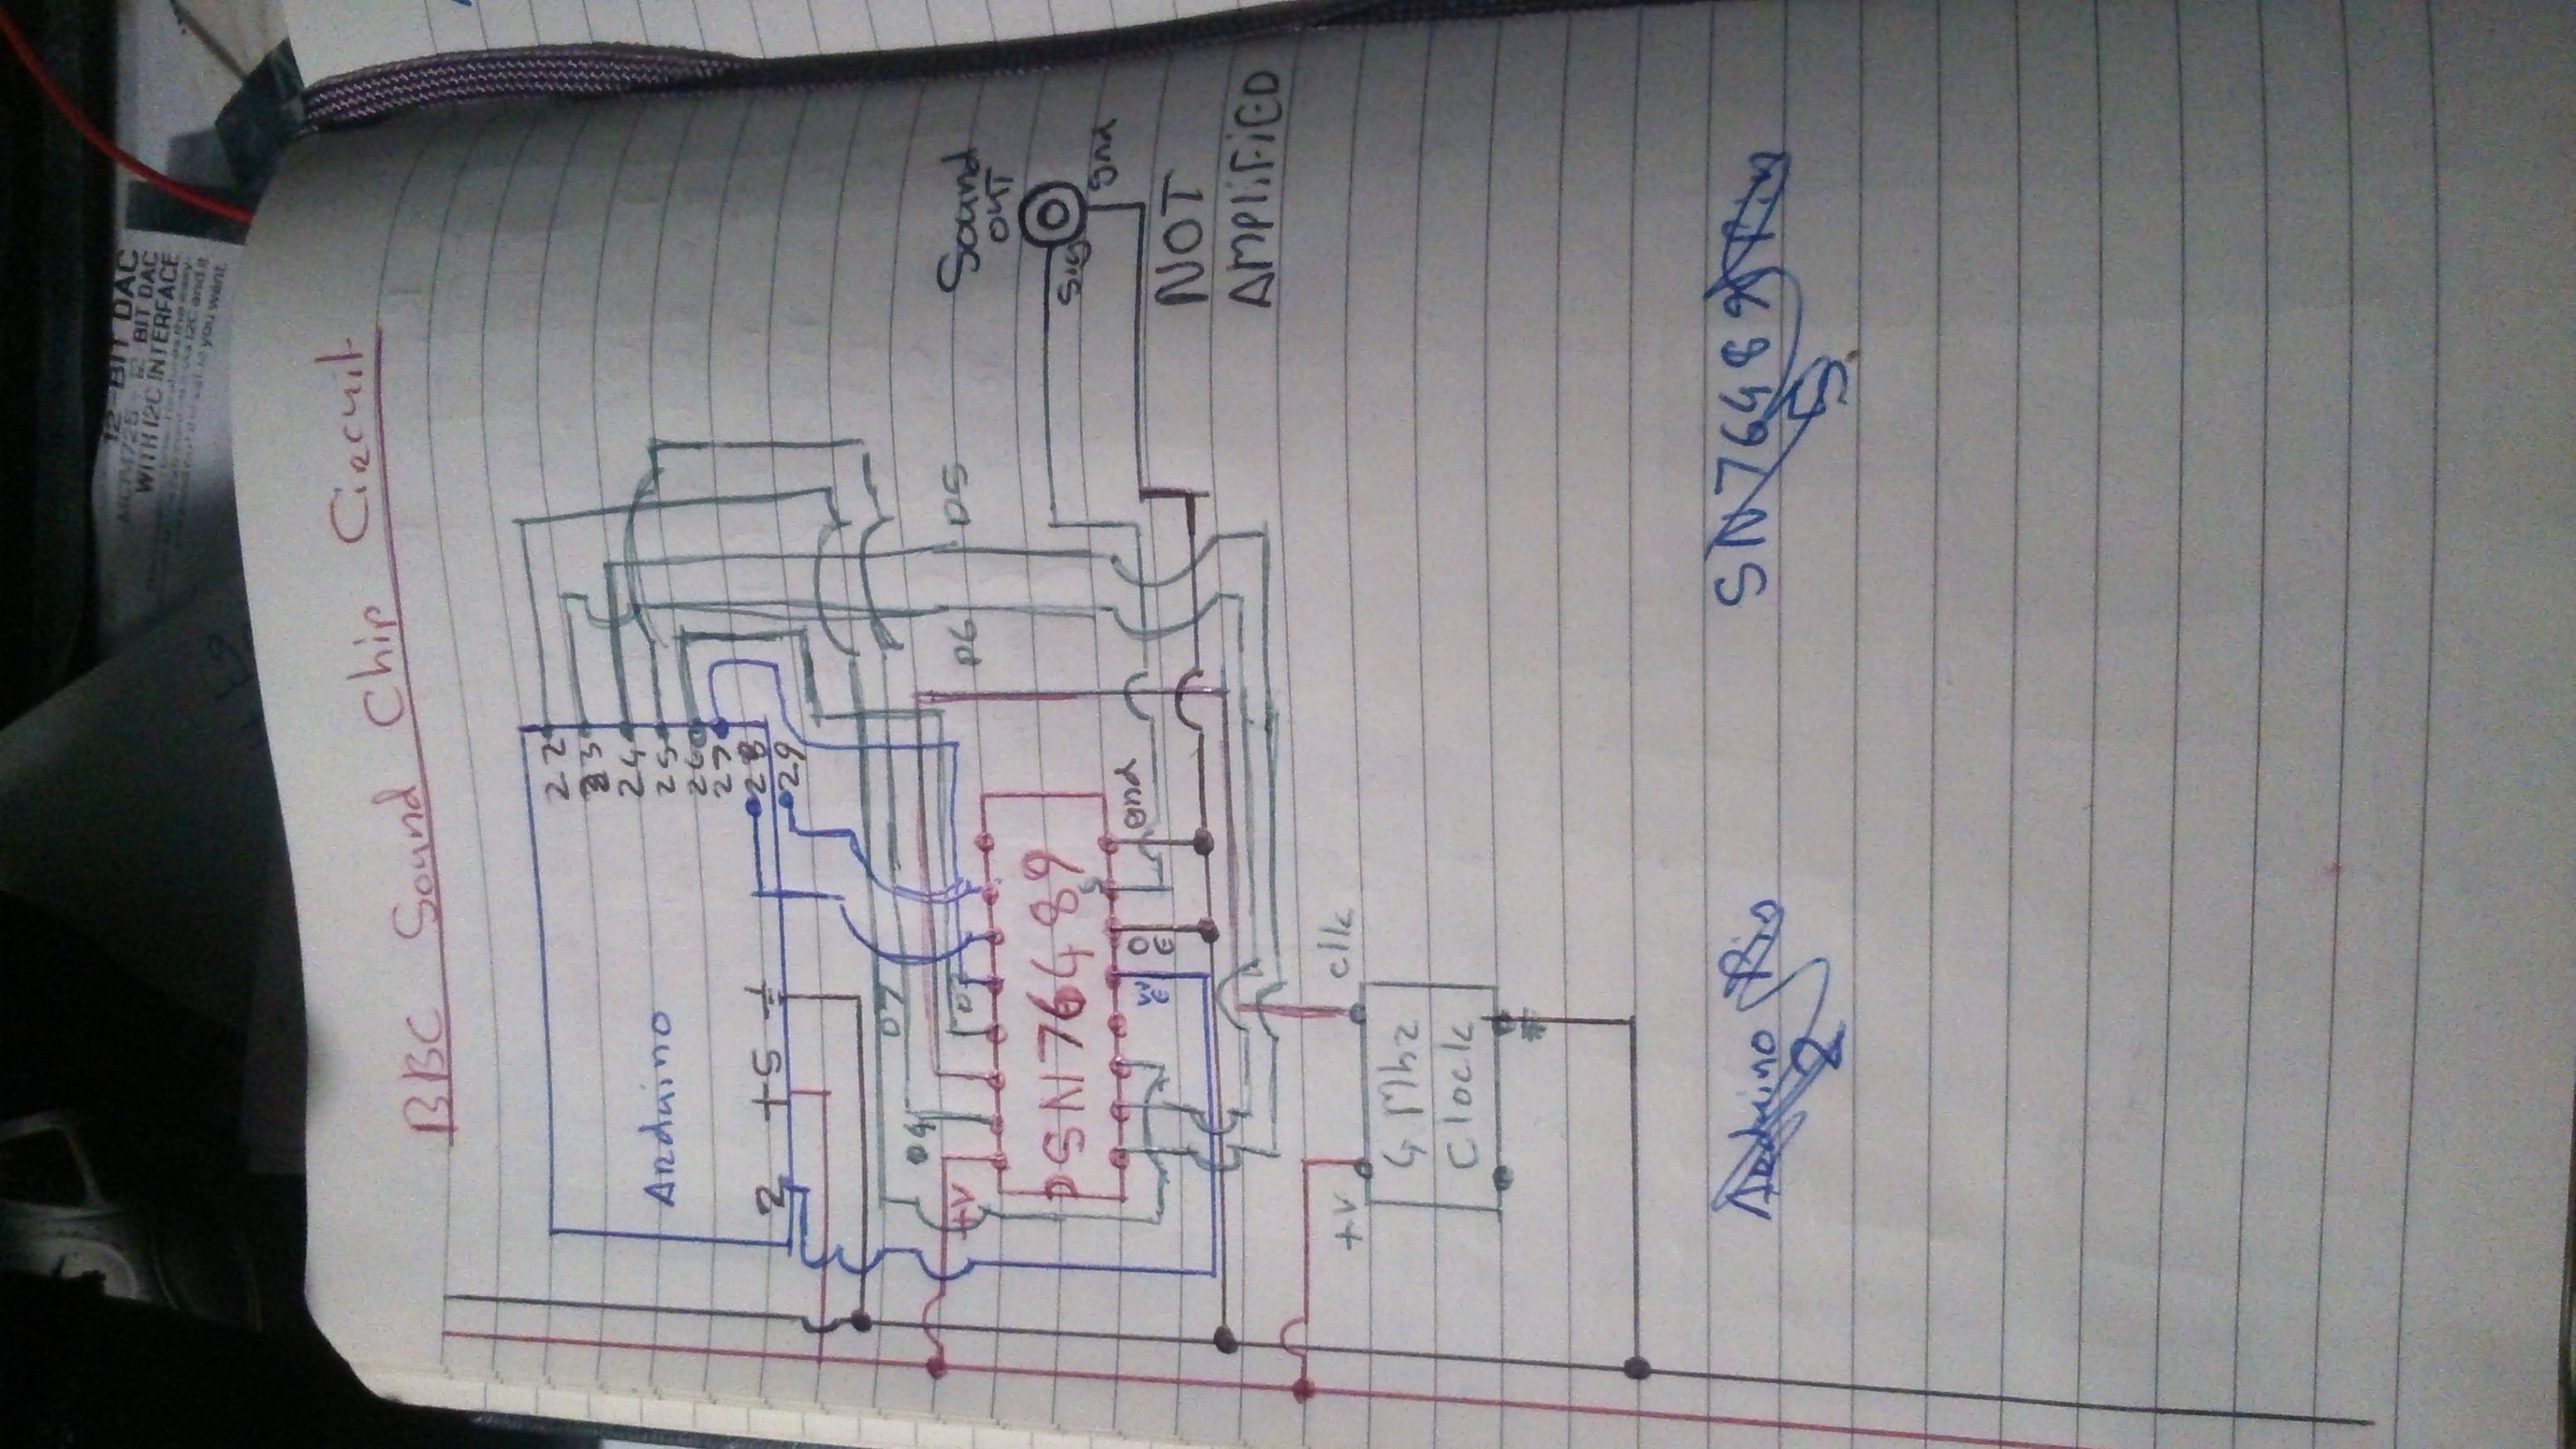 12-BIT DAC
MCP4725 - 12 BIT DAC
WITH I2C INTERFACE
you want.
BBC Sound Chip Circuit
22
23
24
25
26
27
28
29
Arduino
2 +5
D4 D7
+V D3
D6 D5
SN76489
S
WE OE Gnd
Sound
OUT
Sig Gnd
NOT
AMPLIFIED
+V clk
4 Mhz
Clock
Arduino Pin SN76489 Pin
2 5.